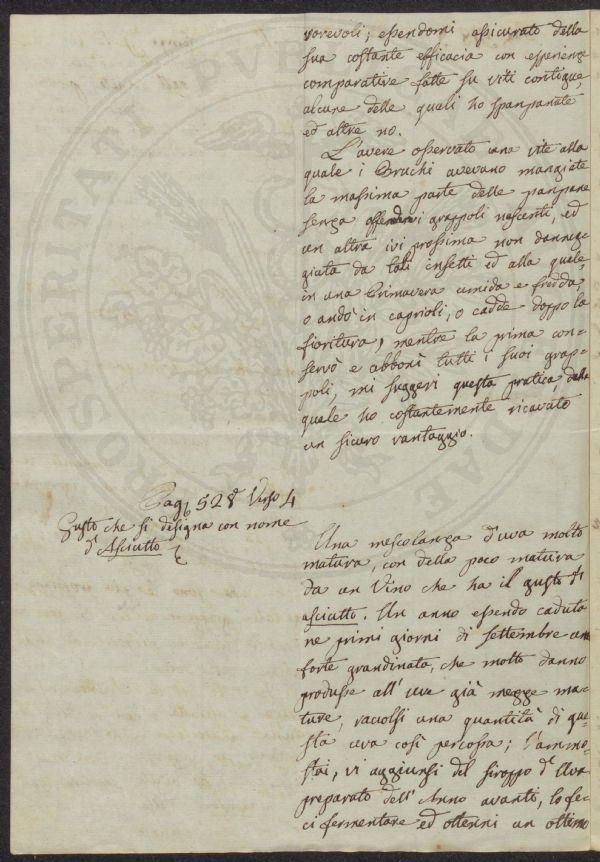 vorevoli; essendomi assicurato della
sua costante efficacia con esperienze
comparative fatte su viti contigue,
alcune delle quali ho spampanate
ed altre no.
L'avere osservato una vite alla
quale i Bruchi avevano mangiate
la massima parte delle pampane
senza offendervi grappoli nascenti, ed
un altra ivi prossima non danneg-
giata da tali insetti ed alla quale,
in una Primavera umida e fredda,
o andò in caprioli, o cadde doppo la
fioritura, mentre la prima con-
servò e abbonì tutti i suoi grap-
poli, mi suggerì questa pratica, dalla
quale ho costantemente ricavato
un sicuro vantaggio.
Pag. 528 Verso 4
Gusto che si disigna con nome
d'Asciutto
Una mescolanza d'uva molto
matura, con della poco matura
da un Vino che ha il gusto di
asciutto. Un anno essendo caduta
ne primi giorni di Settembre una
forte grandinata, che molto danno
produsse all'uve già mezze ma-
ture, raccolsi una quantità di que-
sta uva così percossa; l'ammo-
stai, vi aggiunsi del siroppo d'Uva
preparato dell'Anno avanti, lo fe-
ci fermentare ed ottenni un ottimo
PROSPERITATI PVB